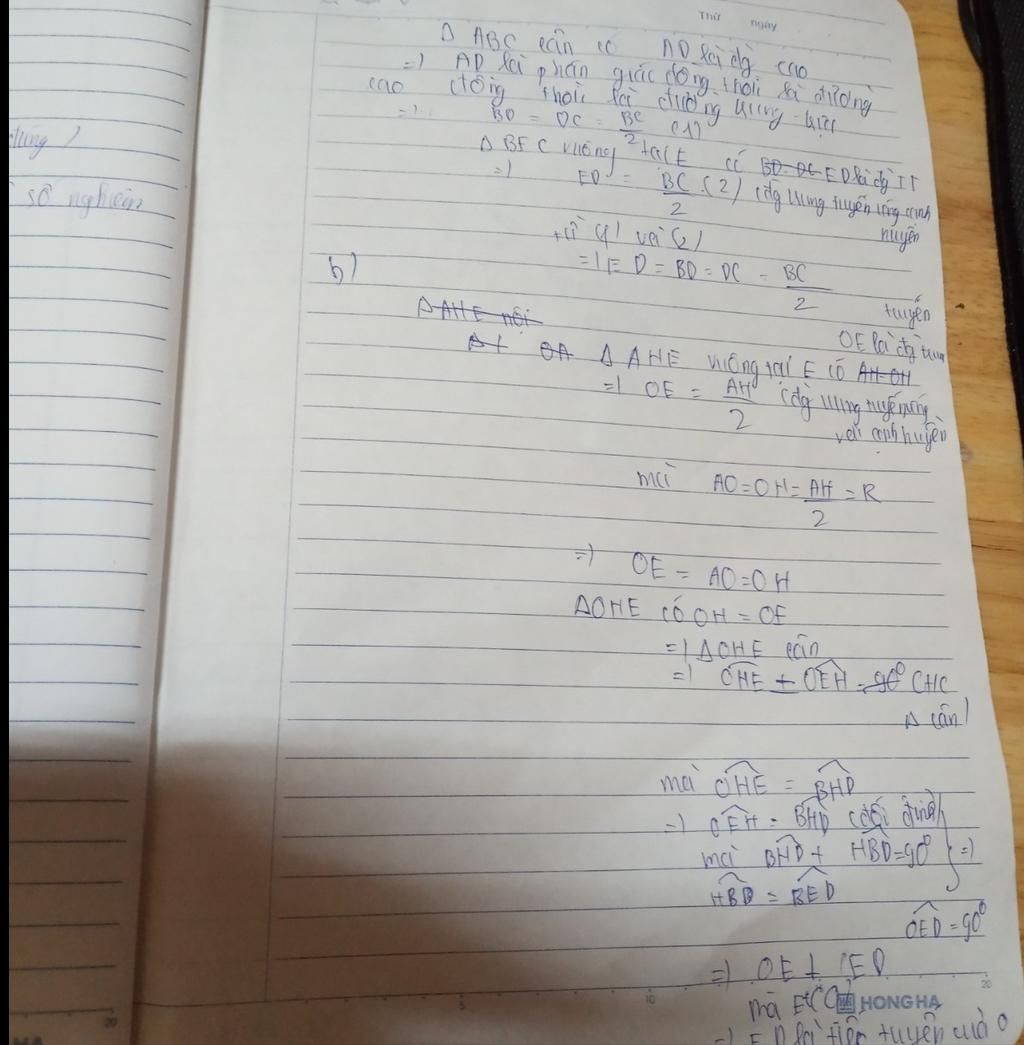 Thứ ngày
Δ ABC cân có AD là đg cao
=) AD là phân giác đồng thời là đường
cao đồng thời là đường trung trực
=) BD = DC = BC/2 (1)
Δ BEC vuông tại E có BD=DC ED là đg TT
=) ED = BC/2 (2) (đg trung tuyến ứng cạnh
huyền
từ (1) và (2)
=) ED = BD = DC = BC/2
b)
tuyến
Δ AHE nội
OE là đg trung
Δ OA Δ AHE vuông tại E có AH OH
=) OE = AH/2 (đg trung tuyến ứng
với cạnh huyền
mà AO=OH=AH/2=R
=) OE = AO=OH
ΔOHE có OH = OE
=) ΔOHE cân
=) OHE + OEH = 90°
Δ cân)
mà OHE = BHD
=) OEH = BHD (đối đỉnh)
mà BHD + HBD=90° } =)
HBD = BED
OED=90°
=) OE ⊥ ED
mà E (O)
HONG HA
=) ED là tiếp tuyến của O
dung)
số nghiệm
5
10
20
20
HA